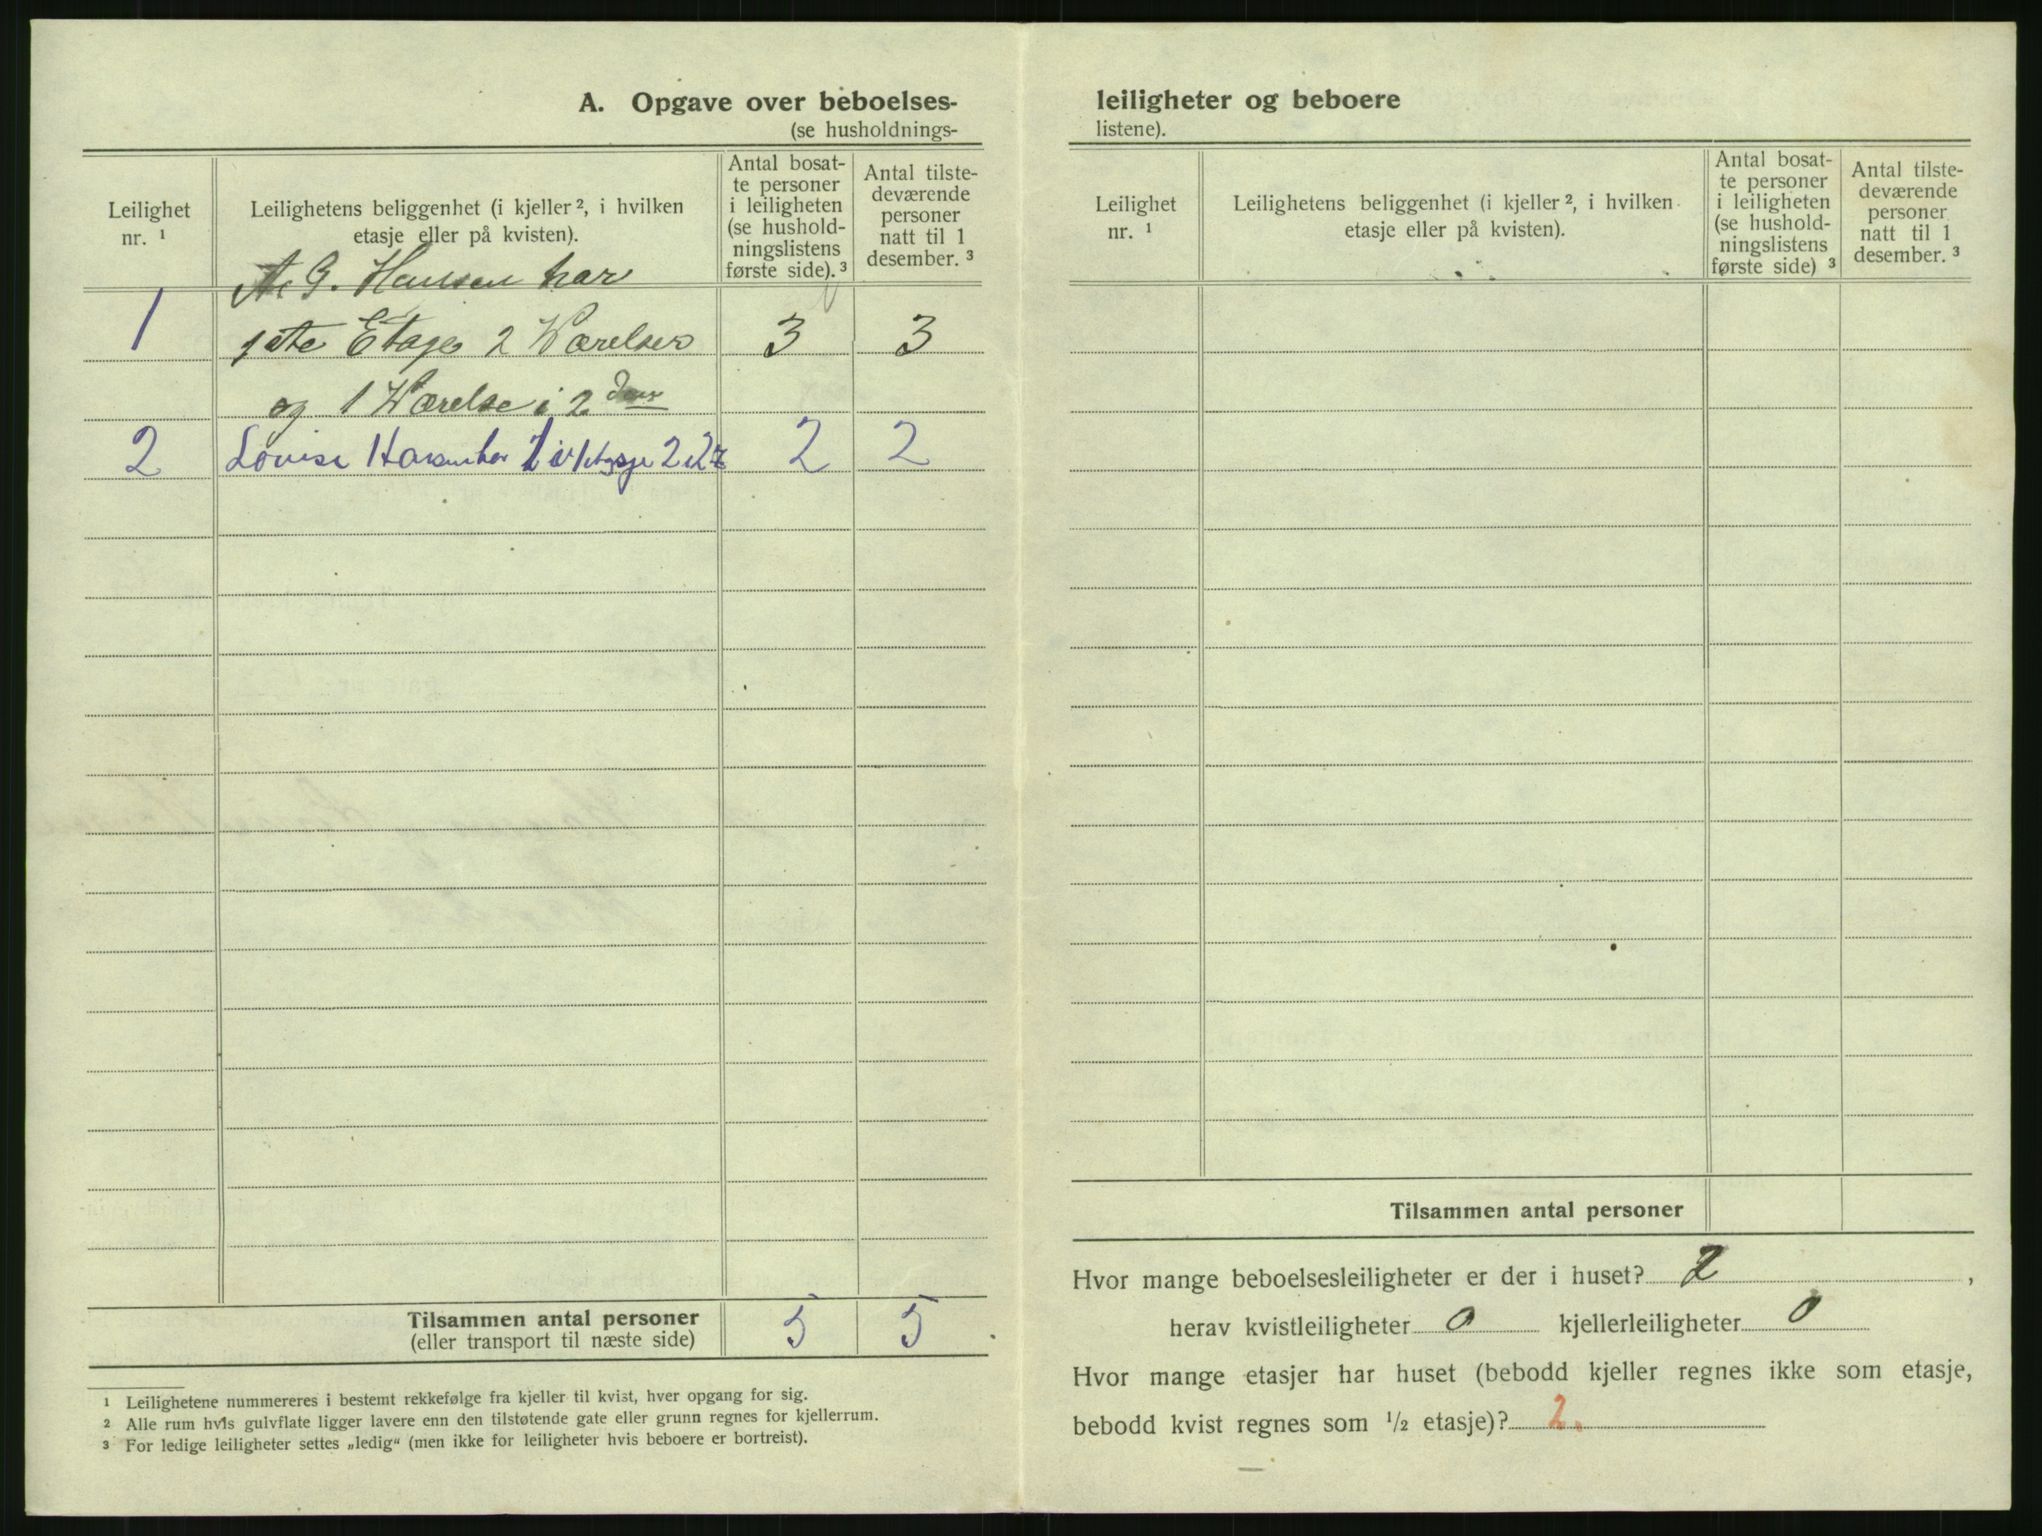 A. Opgave over beboelses-
(se husholdnings-
Leilighet nr. ¹
Leilighetens beliggenhet (i kjeller ², i hvilken etasje eller på kvisten).
Antal bosat-
te personer
i leiligheten
(se hushold-
ningslistens
første side). ³
Antal tilste-
deværende
personer
natt til 1
desember. ³
A. G. Hansen har
1 1ste Etage 2 Værelser 3 3
og 1 Værelse i 2den
2 Lovise Hansen har 1 i 1 2 2 2
Tilsammen antal personer 5 5
(eller transport til næste side)
¹ Leilighetene nummereres i bestemt rekkefølge fra kjeller til kvist, hver opgang for sig.
² Alle rum hvis gulvflate ligger lavere enn den tilstøtende gate eller grunn regnes for kjellerrum.
³ For ledige leiligheter settes „ledig“ (men ikke for leiligheter hvis beboere er bortreist).
leiligheter og beboere
listene).
Leilighet nr. ¹
Leilighetens beliggenhet (i kjeller ², i hvilken etasje eller på kvisten).
Antal bosat-
te personer
i leiligheten
(se hushold-
ningslistens
første side) ³
Antal tilste-
deværende
personer
natt til 1
desember. ³
Tilsammen antal personer
Hvor mange beboelsesleiligheter er der i huset? 2,
herav kvistleiligheter 0 kjellerleiligheter 0
Hvor mange etasjer har huset (bebodd kjeller regnes ikke som etasje,
bebodd kvist regnes som ½ etasje)? 2.